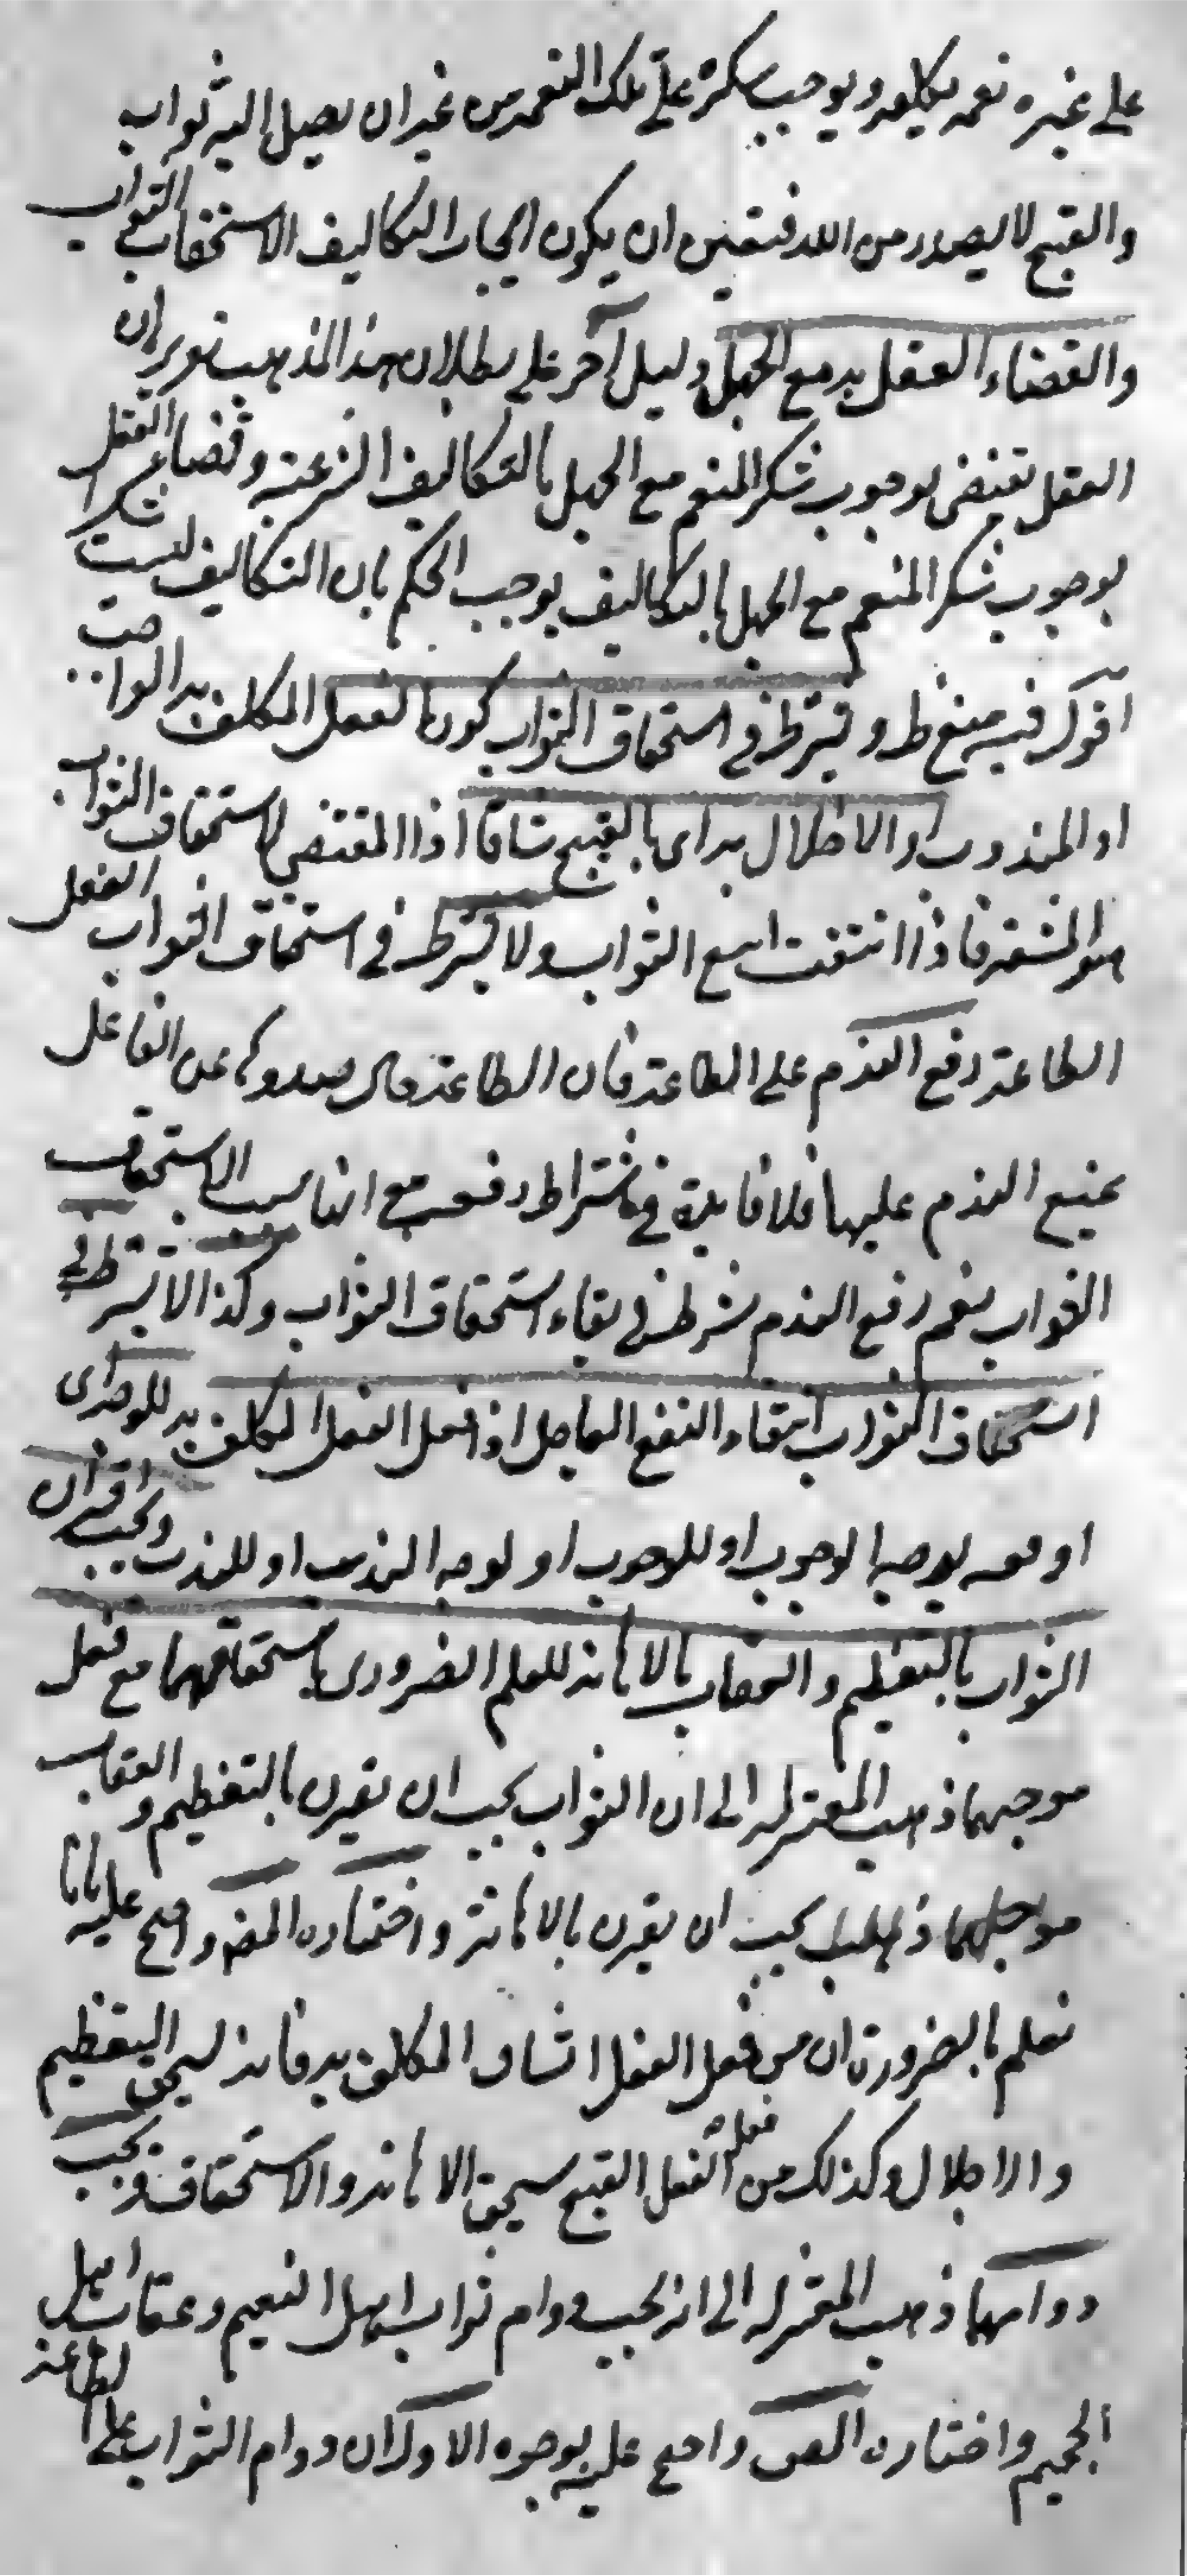 على غيره نعمه يكلفه ويوجب شكره على تلك النعمة من غير ان يصل اليه ثواب
والقبيح لا يصدر من الله فتعين ان يكون ايجاب التكاليف لاستحقاق الثواب
والقضاء العقل به مع الجهل دليل آخر على بطلان هذا المذهب تقريره ان
العقل يقتضى بوجوب شكر المنعم مع الجهل بالتكاليف الشرعية وقضاء العقل
بوجوب شكر المنعم مع الجهل بالتكاليف يوجب الحكم بان التكاليف ليست شكرا
اقول فيه ويشترط في استحقاق الثواب كون الفعل المكلف به الواجب
او المندوب او الاخلال به اى بالقبيح شاقا اذ المقتضى لاستحقاق الثواب
هو المشقة فاذا انتفت امتنع الثواب ولا يشترط في استحقاق الثواب الفعل
الطاعة رفع الندم على الطاعة فان الطاعة حال صدورها عن الفاعل
يمتنع الندم عليها فلا فايدة في اشتراط رفعه مع انها سبب الاستحقاق
الثواب نعم رفع الندم شرط في بقاء استحقاق الثواب وكذا لا يشترط في
استحقاق الثواب انتفاء النفع العاجل اذا فعل الفعل المكلف به للوجه اى
او وقعه لوجه الوجوب او للوجوب او لوجه الندب او للندب ويجب اقتران
الثواب بالتعظيم والعقاب بالاهانة للعلم الضرورى باستحقاقهما مع فعل
موجبهما ذهب المعتزلة الى ان الثواب يجب ان يقترن بالتعظيم والعقاب
يجب ان يقترن بالاهانة واختاره المصنف واحتج عليه بانا
نعلم بالضرورة ان من فعل الفعل الشاق المكلف به فانه يستحق التعظيم
والاجلال وكذلك من فعل الفعل القبيح يستحق الاهانة والاستحقاف ويجب
دوامهما ذهب المعتزلة الى انه يجب دوام ثواب اهل النعيم وعقاب اهل
الجحيم واختاره المص واحتج عليه بوجوه الاول ان دوام الثواب على الطاعة